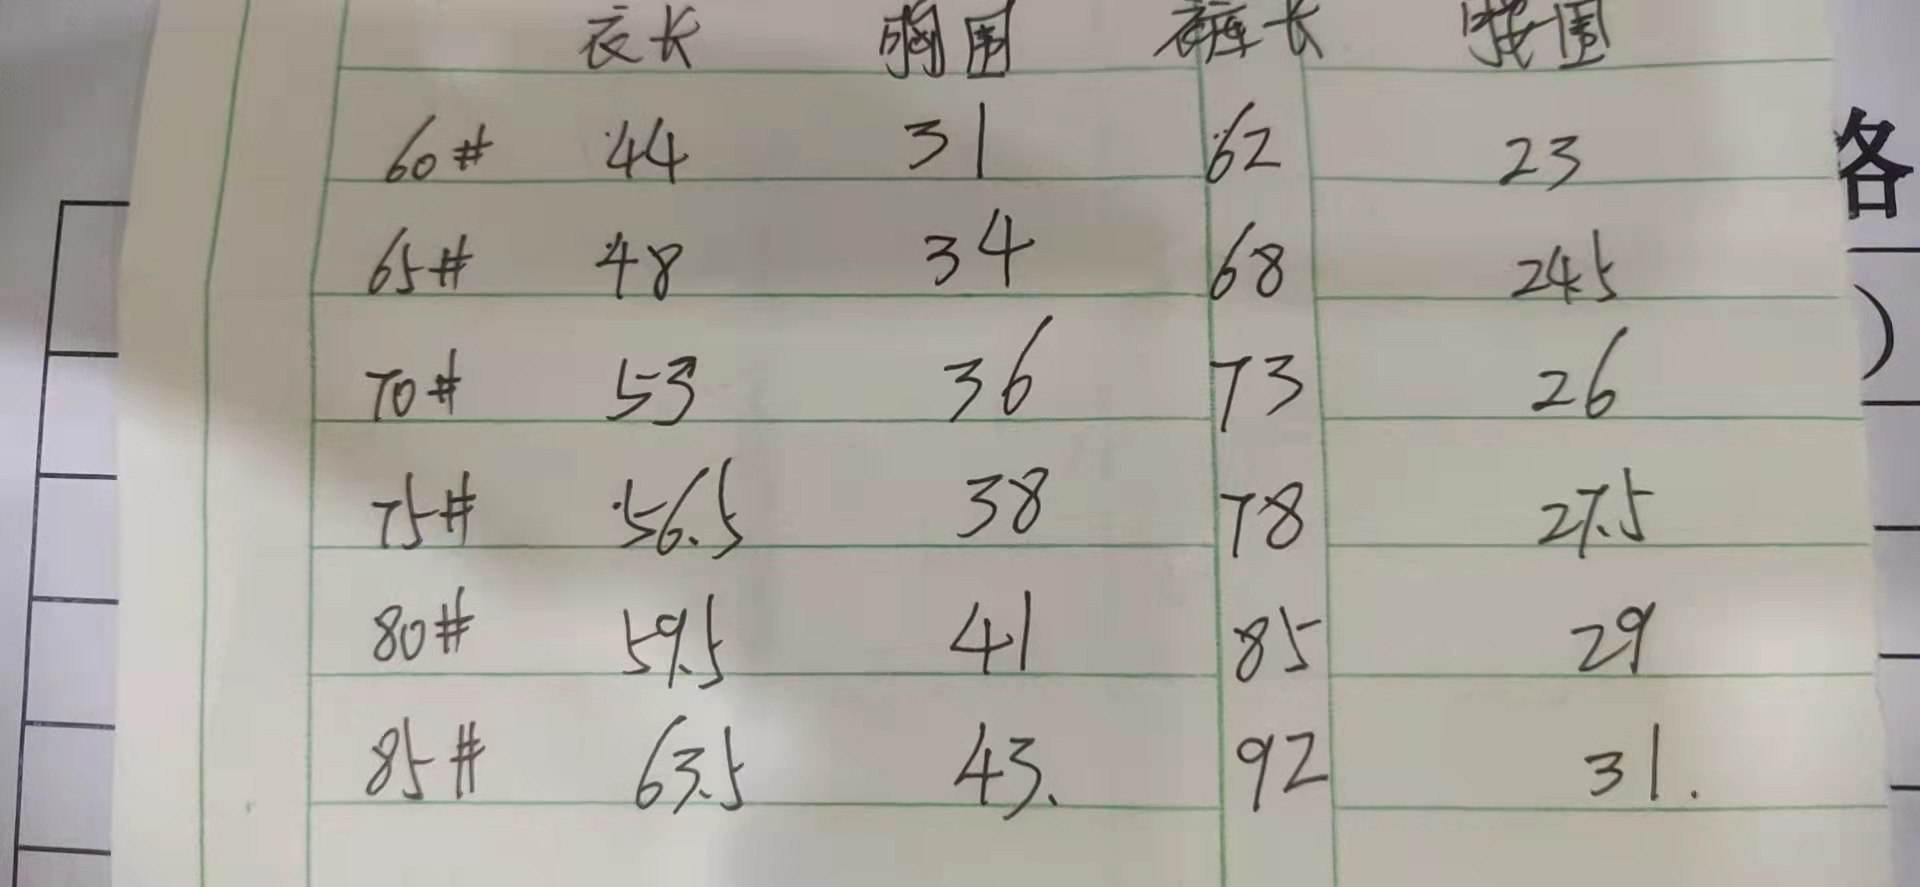 衣长 胸围 裤长 腰围
60# 44 31 62 23
65# 48 34 68 24.5
70# 53 36 73 26
75# 56.5 38 78 27.5
80# 59.5 41 85 29
85# 63.5 43. 92 31.
各
)